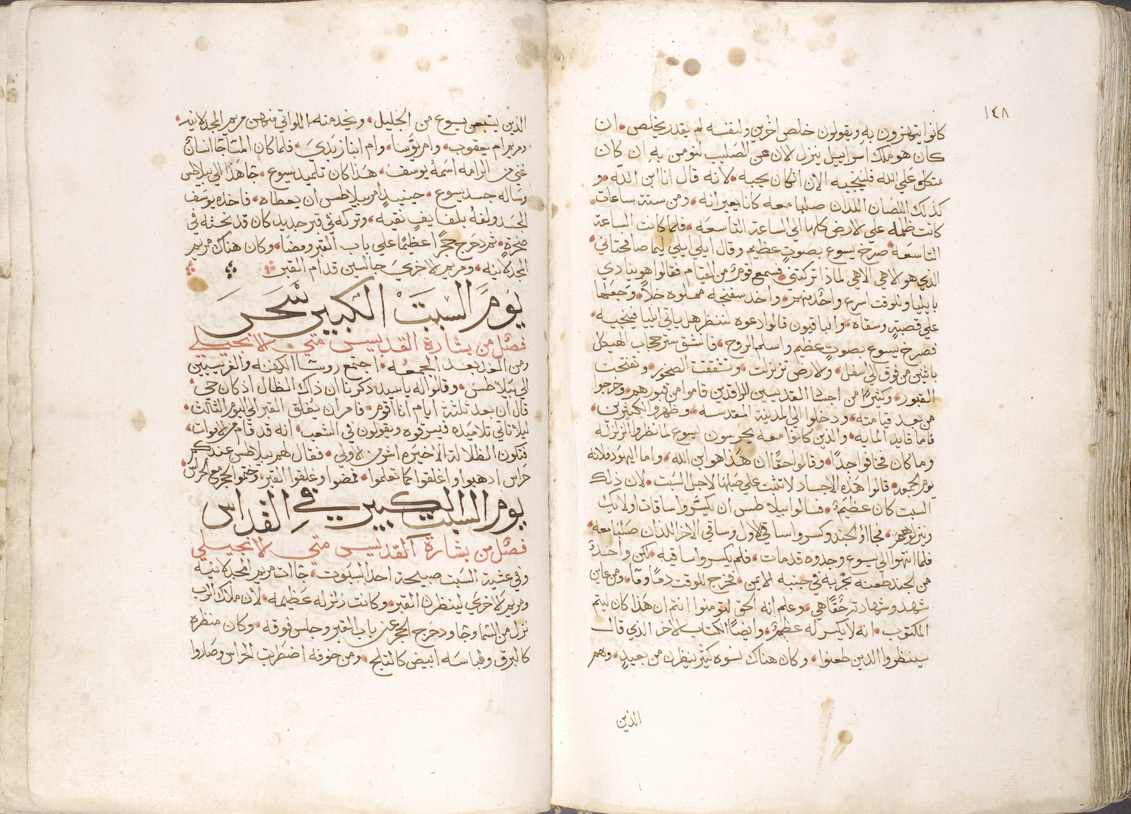 ١٤٨
كانوا يتهزون به ويقولون خلص اخرين ولنفسه لم يقدر يخلص ان
كان هو ملك اسراييل ينزل لان عن الصليب لنومن به ان كان
متكل علي الله فلينجيه الان ان كان يحبه لانه قال انا ابن الله و
كذلك اللصان اللذان صلبا معه كانا يعيرانه ومن ستة ساعات
كانت ظلمه علي الارض كلها الي الساعة التاسعه فلما كانت الساعة
التاسعه صرخ يسوع بصوت عظيم وقال ايلي ايلي لما صافختاني
الذي هو لاهي لاهي لماذا تركتني فسمع قوم من القيام فقالوا هو ينادي
بايليا وللوقت اسرع واحد منهم واخذ سفنجه مملوه خلا وجعلها
علي قصبة وسقاه والباقيون قالوا دعوه لننظر هل ياتي ايليا فينجيه
فصرخ يسوع بصوت عظيم واسلم الروح فانشق ستر حجاب الهيكل
باثنين من فوق الي سفل ولارض تزلزلت وتشققت الصخور وتفتحت
القبور وكثيرا من اجساد القديسين الراقدين قاموا من قبورهم وخرجوا
من بعد قيامته ودخلوا الي المدينة المقدسه وظهروا لكثيرين
فاما قايد المايه والذين كانوا معه يحرسون يسوع لما نظروا الزلزله
وما كان فخافوا جدا وقالوا حقا ان هذا هو ابن الله واما اليهود فلانه
يوم الجمعه قالوا هذه الاجساد لا تثبت علي صلبانها لاجل السبت لان ذلك
السبت كان عظيما فسالوا بيلاطس ان يكسروا ساقات اوليك
وينزلوهم فجاوا الجند وكسروا ساقي الاول وساقي الاخر اللذان صلبا معه
فلما انتهوا الي يسوع وجدوه قد مات فلم يكسروا ساقيه لكن واحدا
من الجند طعنه بحربه في جنبه الايمن فخرج للوقت دم وما ومن عاين
شهد وشهادته حقا هي وعلم انه الحق لتومنوا انتم ان هذا كان ليتم
المكتوب انه لا يكسر له عظم وايضا الكتاب لاخر الذي قال
سينظروا الذين طعنوا وكان هناك نسوه كثير ينظرن من بعيد وهم
الذين
الذين يتبعن يسوع من الجليل ويخدمنه اللواتي منهن مريم المجدلانيه
ومريم ام يعقوب وام يوسا وام ابنا زبدي فلما كان المسا جا انسان
غني من الرامه اسمه يوسف هذا كان تلميذ يسوع جا هذا الي بيلاطس
وساله جسد يسوع حينيذ امر بيلاطس ان يعطاه فاخذ يوسف
الجسد ولفه بلفايف نقيه وتركه في قبر جديد كان قد نحته في
صخرة ثم دحرج حجرا عظيما علي باب القبر ومضا وكان هناك مريم
المجدلانيه ومريم لاخري جالسين قدام القبر
يوم السبت الكبير سحر
فصل من بشارة القديس متي لانجيلي
ومن الغد بعد الجمعه اجتمع روسا الكهنه والفريسيين
الي بيلاطس وقالوا له يا سيد ذكرنا ان ذلك الظال اذ كان حي
قال ان بعد تلتة ايام انا اقوم فامر ان يغلق القبر الي اليوم الثالث
ليلا تاتي تلاميذه فيسرقوه ويقولون في الشعب انه قد قام من الاموات
فتكون الظلالة الاخيره اشر من الاولي فقال لهم بيلاطس عندكم
حراس ادهبوا واغلقوا كما تعلموا فمضوا وغلقوا القبر وختموا الحجر مع الحراس
يوم السبت الكبير في القداس
فصل من بشارة القديس متي لانجيلي
وفي عشية السبت صبيحة احد السبوت جاات مريم المجدلانيه
ومريم لاخري لينظرن القبر وكانت زلزله عظيمه لان ملاك الرب
نزل من السما وجا ودحرج الحجر عن باب القبر وجلس فوقه وكان منظره
كالبرق ولباسه ابيض كالثلج ومن خوفه اضطربت الحراس وصاروا